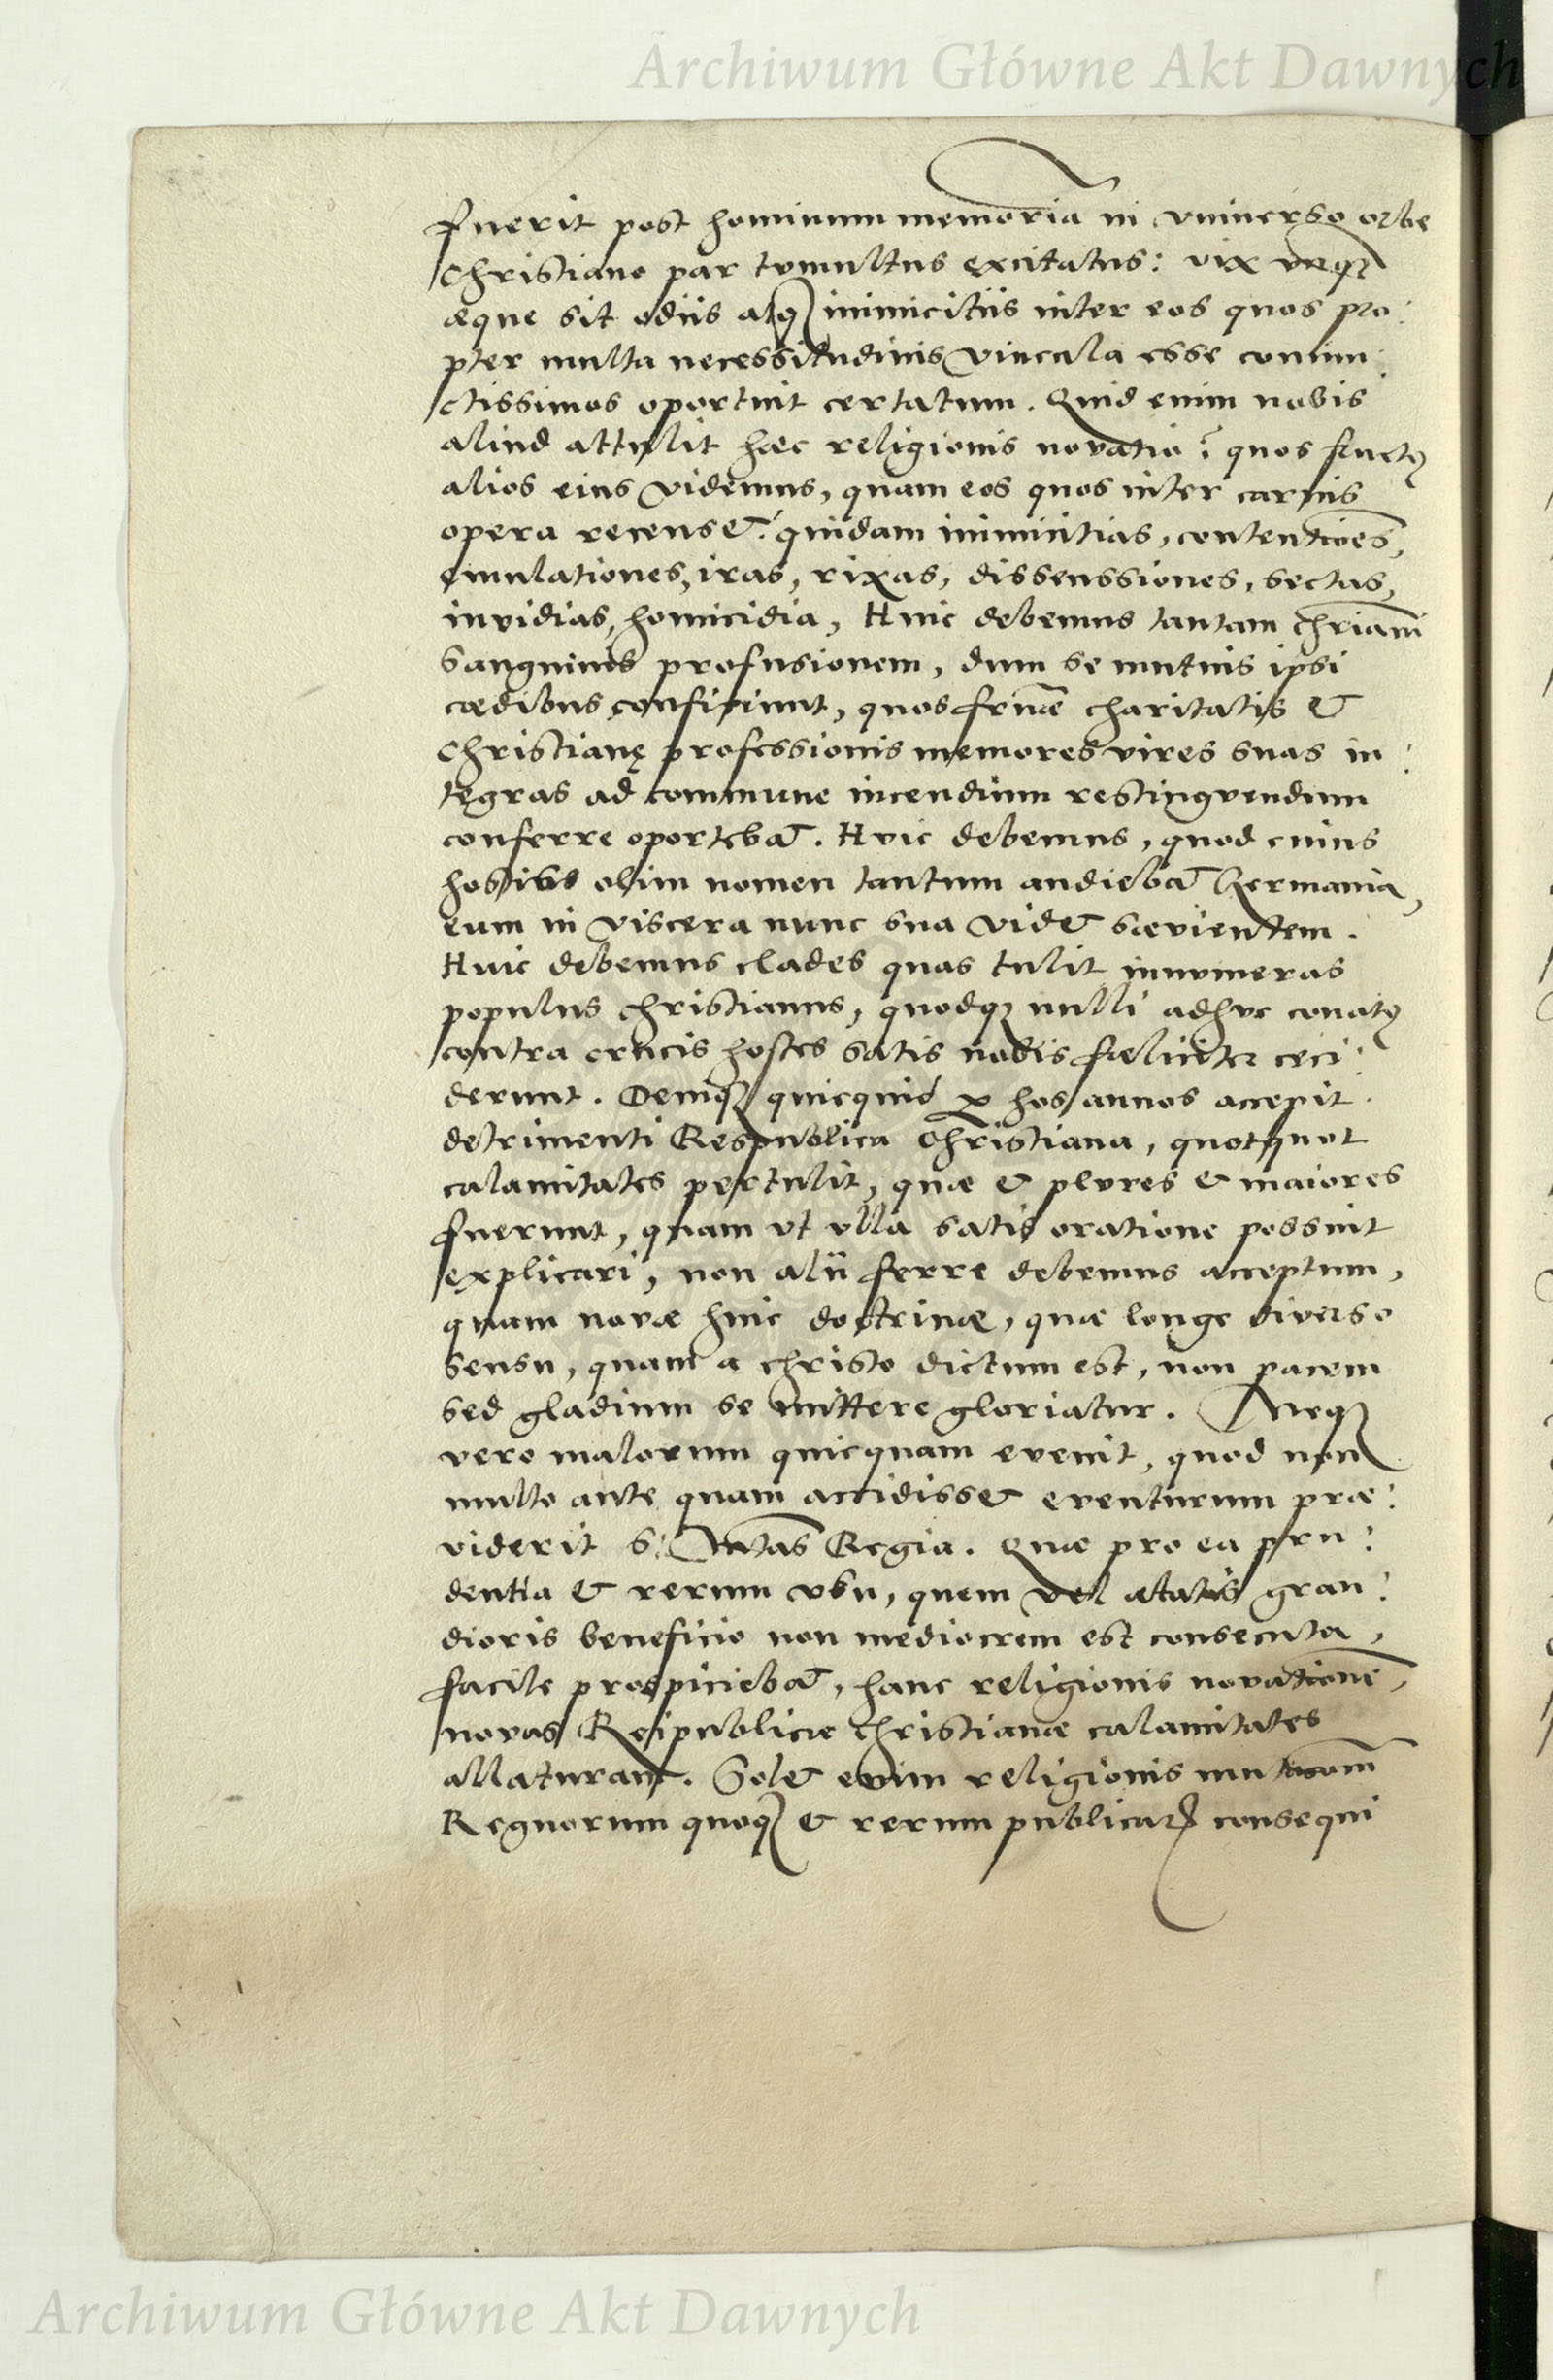 Archiwum Główne Akt Dawnych
fuerit post hominum memoriã in vniuerso orbe
Christiano par tumultus excitatus: vix vnq̃
æque sit odiis atq; inimicitiis inter eos quos pro:
pter multa necessitudinis vincula esse coniun:
ctissimos oportuit certatum. Quid enim nobis
aliud attulit hæc religionis novatio? quos fructꝯ
alios eius videmus, quam eos quos inter carnis
opera recenset? quidam inimicitias, contentiões,
emulationes, iras, rixas, dissenssiones, sectas,
invidias, homicidia, Huic debemus tantam chriani
sanguinis profusionem, dum se mutuis ipsi
cædibus conficiunt, quos frnæ charitatis &
Christianę professionis memores vires suas in:
tegras ad commune incendium restinguendum
conferre oportebat. Huic debemus, quod cuius
hostis olim nomen tantum audiebat Germania,
eum in viscera nunc sua videt sævientem.
Huic debemus clades quas tulit innumeras
populus christianus, quodq; nulli adhuc conatꝯ
contra crucis hostes satis nobis fæliciter ceci:
derunt. Deniq; quicquid ꝑ hos annos accepit
detrimenti Respublica Christiana, quotquot
calamitates pertulit, quæ & plures & maiores
fuerunt, quam vt vlla satis oratione possint
explicari, non alii ferre debemus acceptum,
quam novæ huic doctrinæ, quæ longe diverso
sensu, quam a christo dictum est, non pacem
sed gladium se mittere gloriatur. Neq;
vero malorum quicquam evenit, quod non
multo ante quam accidisset eventurum præ:
viderit S: Mtas Regia. Quæ pro ea pru:
dentia & rerum vsu, quem vel ætatis gran:
dioris beneficio non mediocrem est consecuta,
facile prospiciebat, hanc religionis novationẽ,
novas Reipublicæ christianæ calamitates
allaturam. Solet enim religionis mutationẽ
Regnorum quoq; & rerum publicarꝝ consequi
Archiwum Główne Akt Dawnych